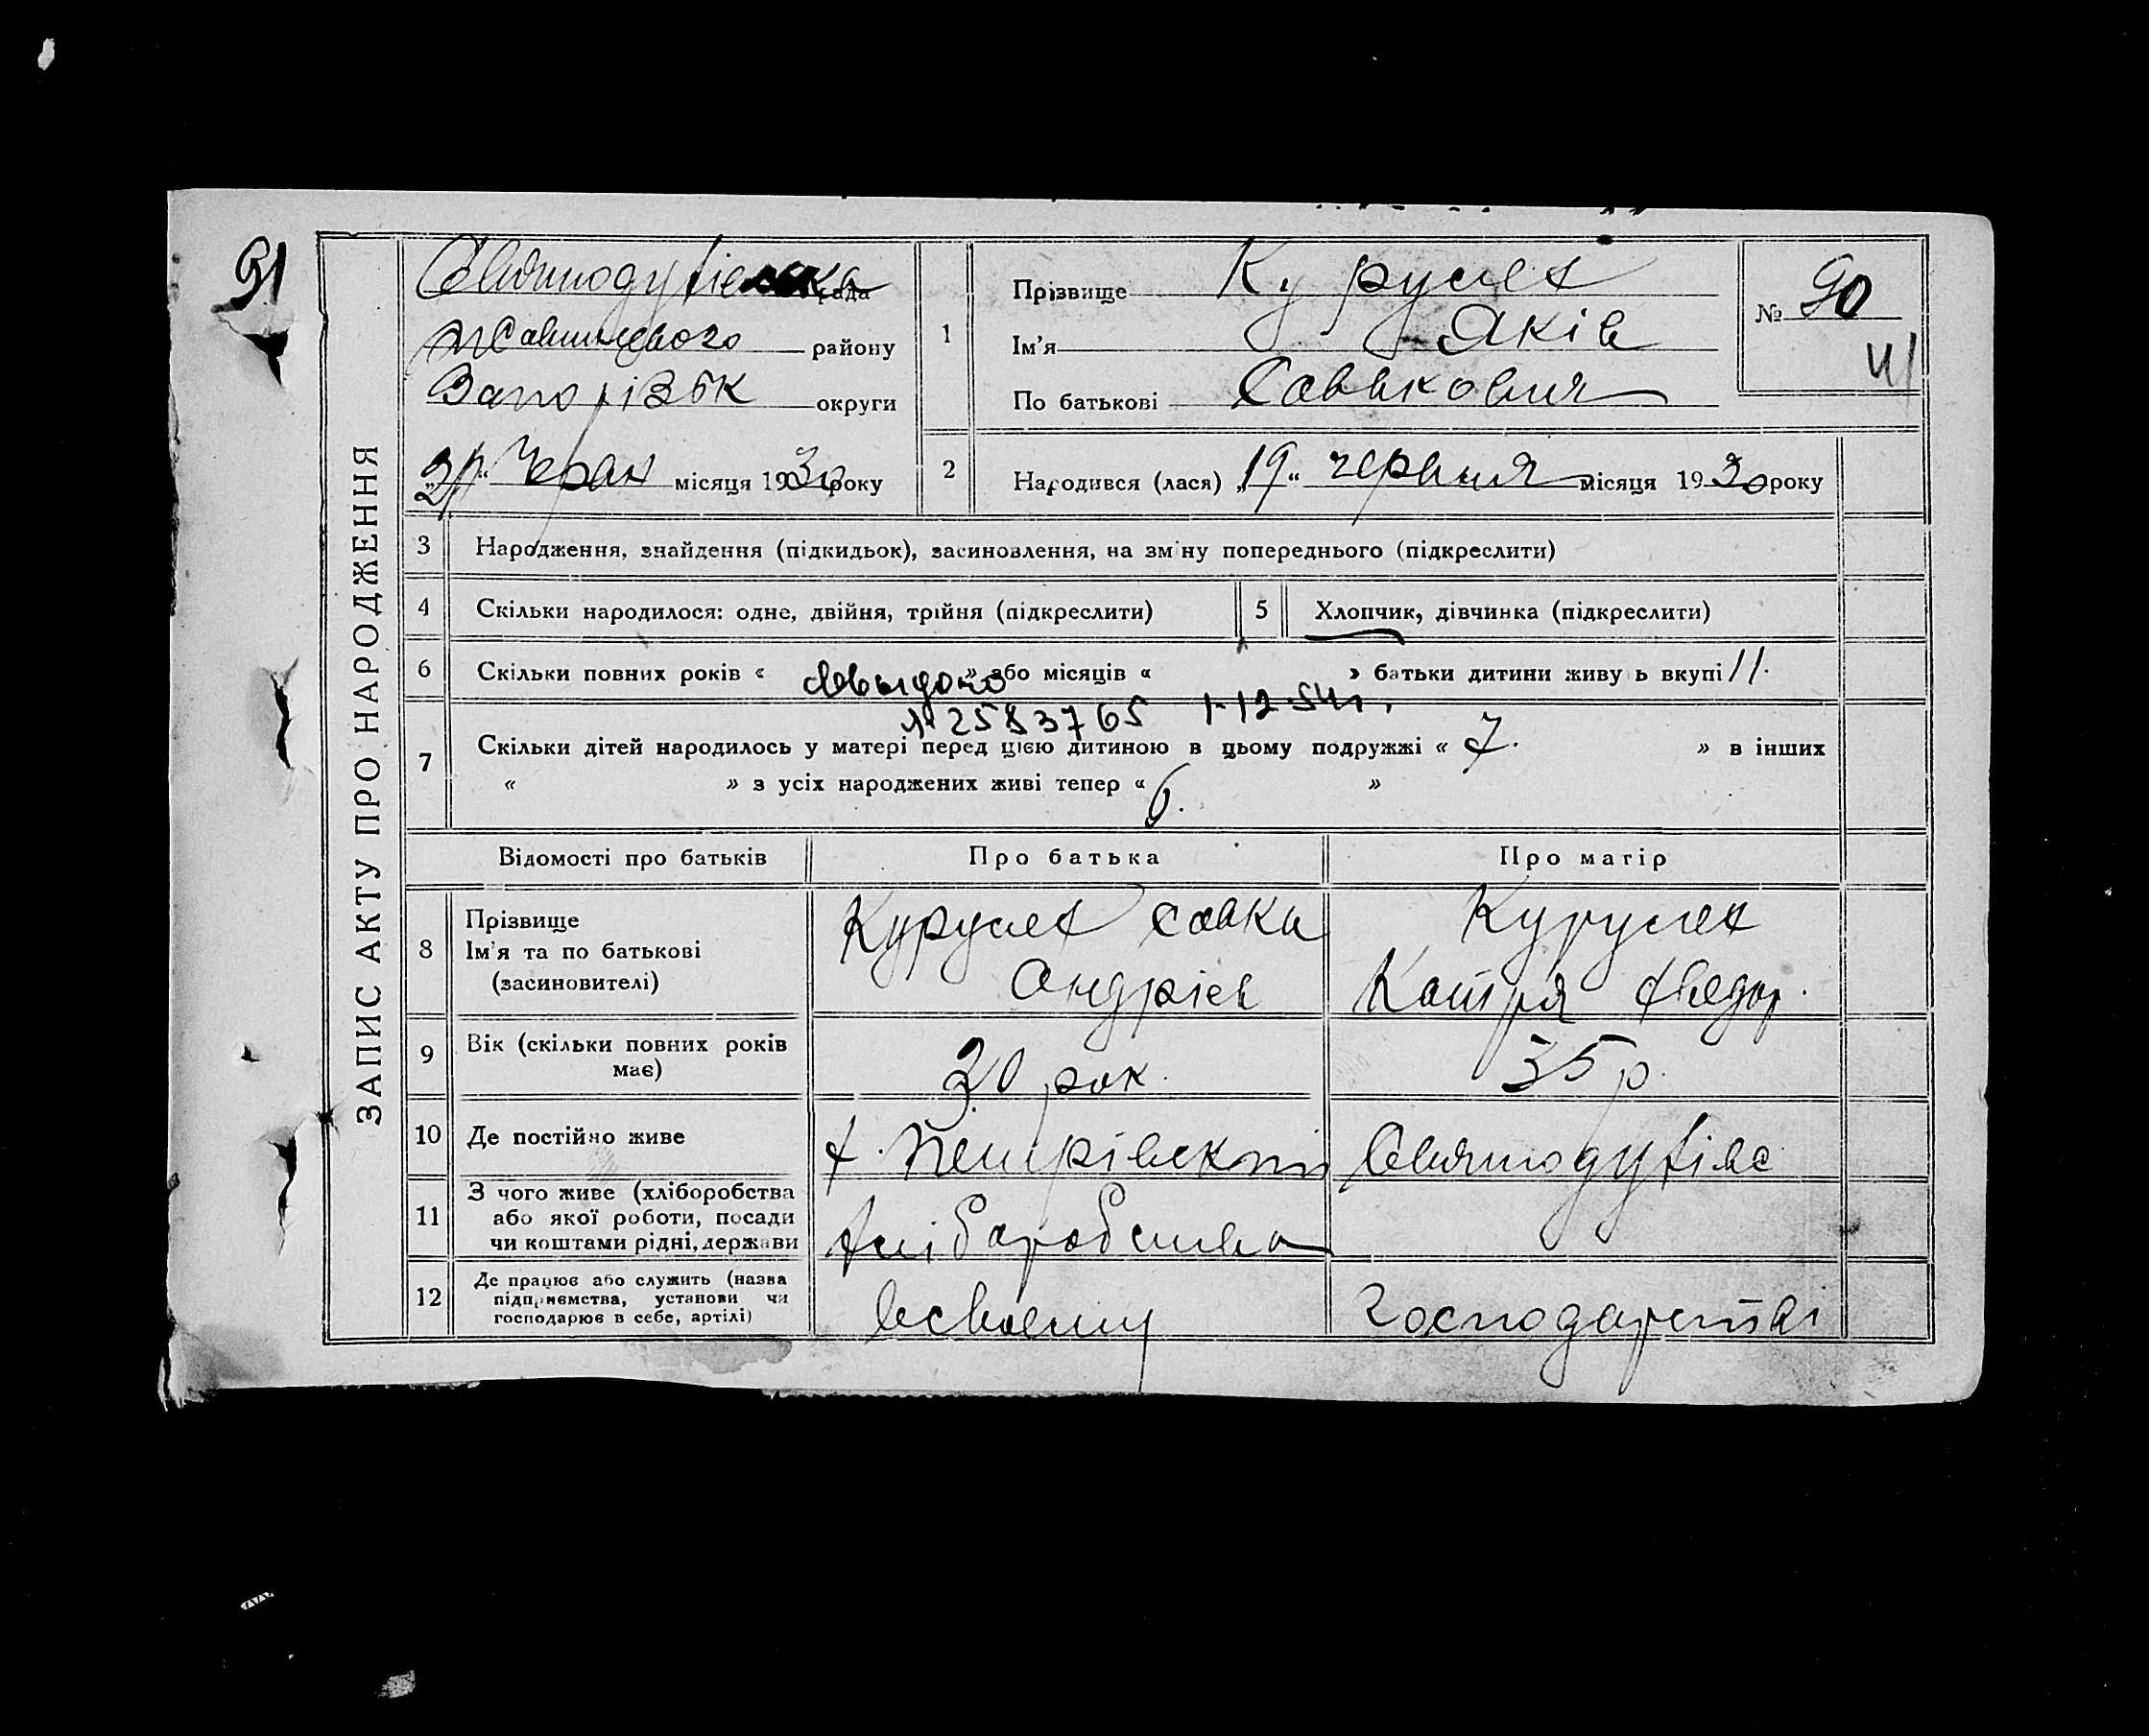 91
ЗАПИС АКТУ ПРО НАРОДЖЕННЯ
Святодухівська рада
району
Запорізьк округи
21 " Черв місяця 1930 року
1
Прізвище
Ім'я Яків
По батькові Савкович
№ 90
2
Народився (лася) „19“ червня місяця 1930 року
3 Народження, знайдення (підкидьок), засиновлення, на зміну попереднього (підкреслити)
4 Скільки народилося: одне, двійня, трійня (підкреслити)
5 Хлопчик, дівчинка (підкреслити)
6 Скільки повних років « » або місяців « » батьки дитини живуть вкупі 11.
№ 2583765 1-12-54г.
7 Скільки дітей народилось у матері перед цією дитиною в цьому подружжі « 7. » в інших
« » з усіх народжених живі тепер « 6. »
Відомості про батьків Про батька Про матір
8 Прізвище
Ім'я та по батькові
(засиновителі)
Савка
Андрієв
Катря Хведор.
9 Вік (скільки повних років
має)
30 рок.
35 р.
10 Де постійно живе
х. Петрівський
Святодухівс
11 З чого живе (хліборобства
або якої роботи, посади
чи коштами рідні, держави
Хліборобства
12 Де працює або служить (назва
підприємства, установи чи
господарює в себе, артілі)
всвоему
господарстві